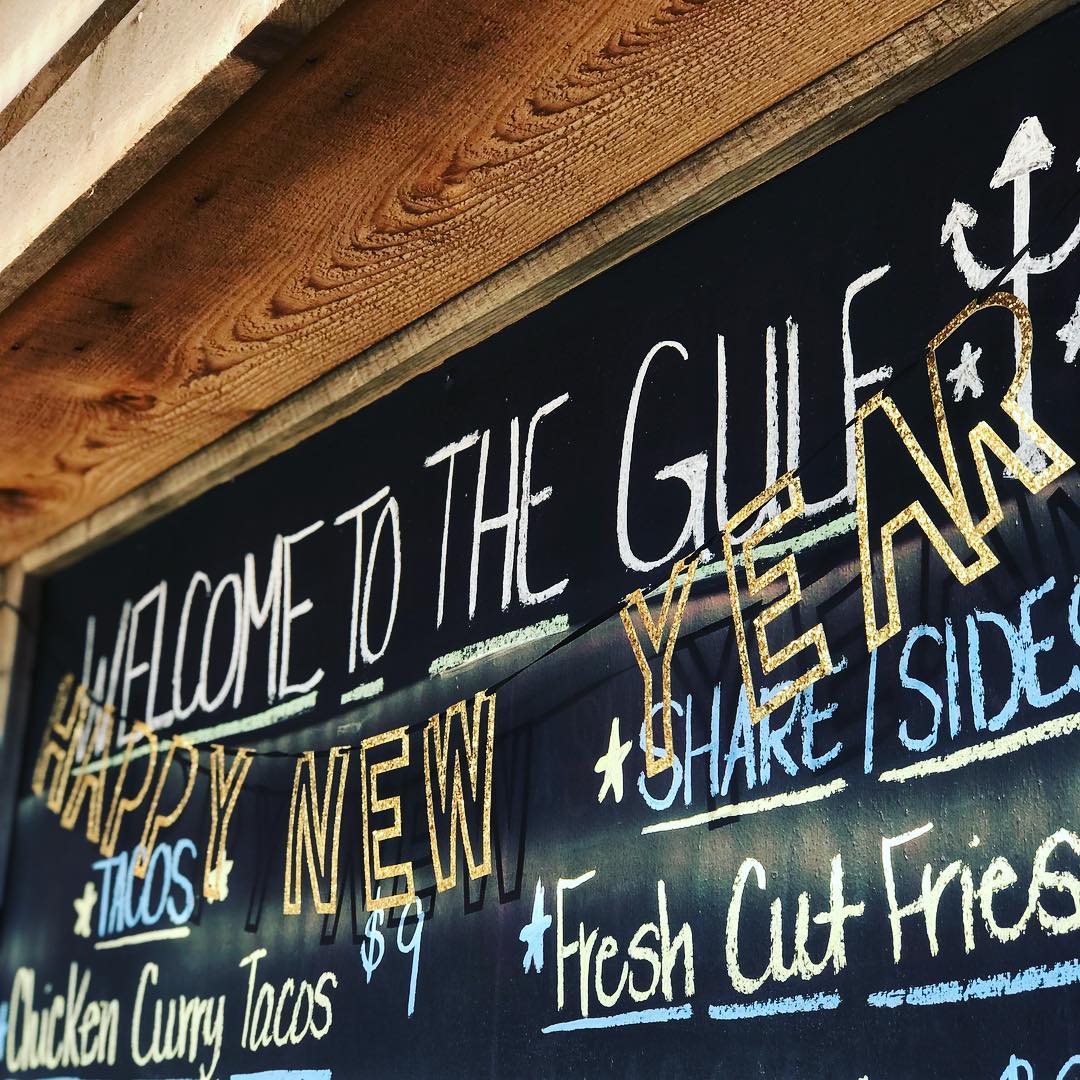 WELCOME TO THE GULF
HAPPY NEW YEAR
TACOS
$9
Chicken Curry Tacos
SHARE / SIDES
Fresh Cut Fries